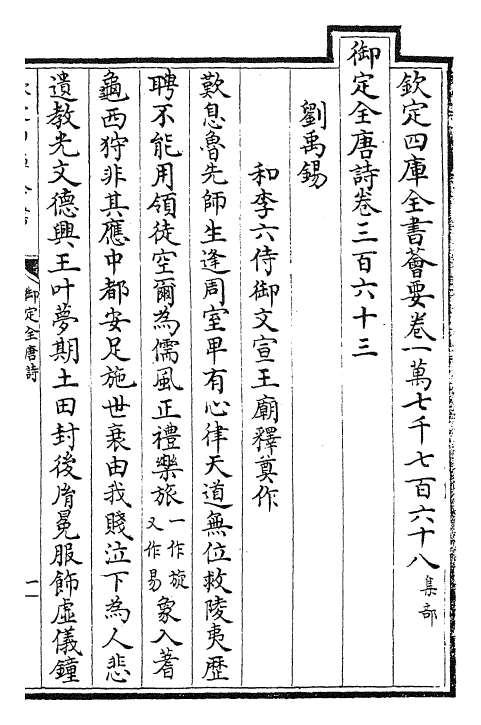 欽定四庫全書薈要卷一萬七千七百六十八 集部
御定全唐詩卷三百六十三
劉禹錫
和李六侍御文宣王廟釋奠作
歎息魯先師生逢周室卑有心律天道無位救陵夷歴
聘不能用領徒空爾為儒風正禮樂旅一作旋又作易象入蓍
龜西狩非其應中都安足施世衰由我賤泣下為人悲
遺教光文德興王叶夢期土田封後胤冕服飾虛儀鐘
御定全唐詩
一